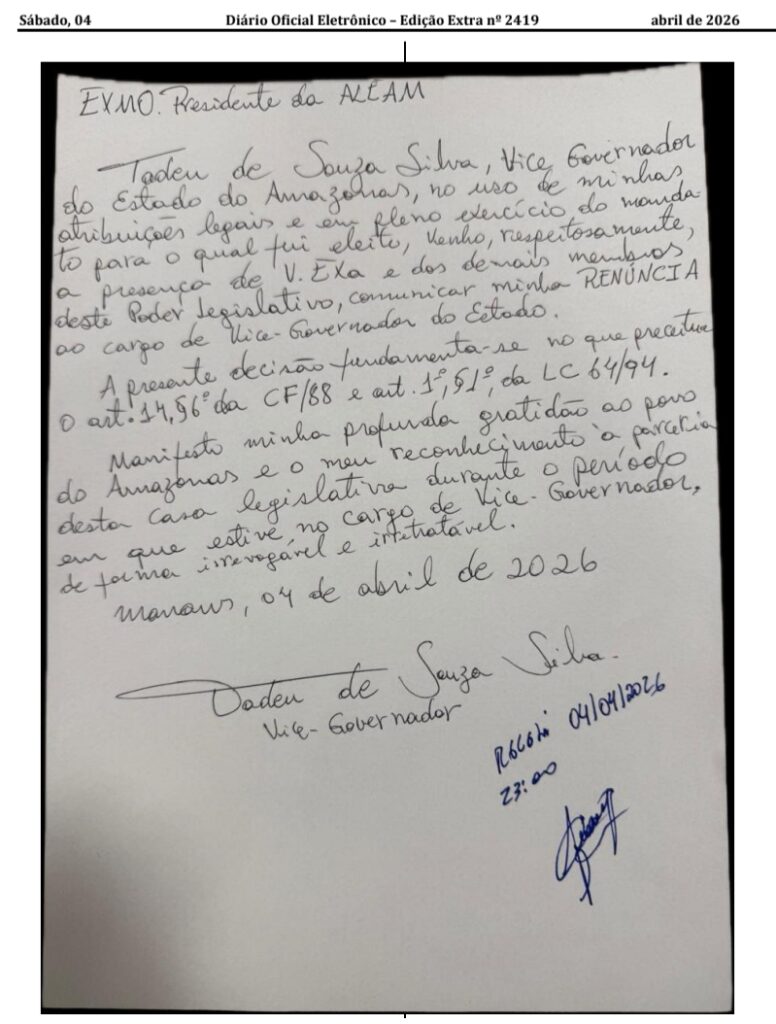 Sábado, 04 Diário Oficial Eletrônico – Edição Extra nº 2419 abril de 2026
EXMO. Presidente da ALEAM
Tadeu de Souza Silva, Vice Governador
do Estado do Amazonas, no uso de minhas
atribuições legais e em pleno exercício do manda-
to para o qual fui eleito, venho, respeitosamente,
a presença de V. EXa e dos demais membros
deste Poder Legislativo, comunicar minha RENÚNCIA
ao cargo de Vice-Governador do Estado.
A presente decisão fundamenta-se no que preceitua
o art. 14, §6º da CF/88 e art. 1º, §1º, da LC 64/94.
Manifesto minha profunda gratidão ao povo
do Amazonas e o meu reconhecimento à parceria
desta casa legislativa durante o período
em que estive no cargo de Vice-Governador,
de forma irrevogável e irretratável.
Manaus, 04 de abril de 2026
Tadeu de Souza Silva.
Vice-Governador
Recebi 04/04/2026
23:00